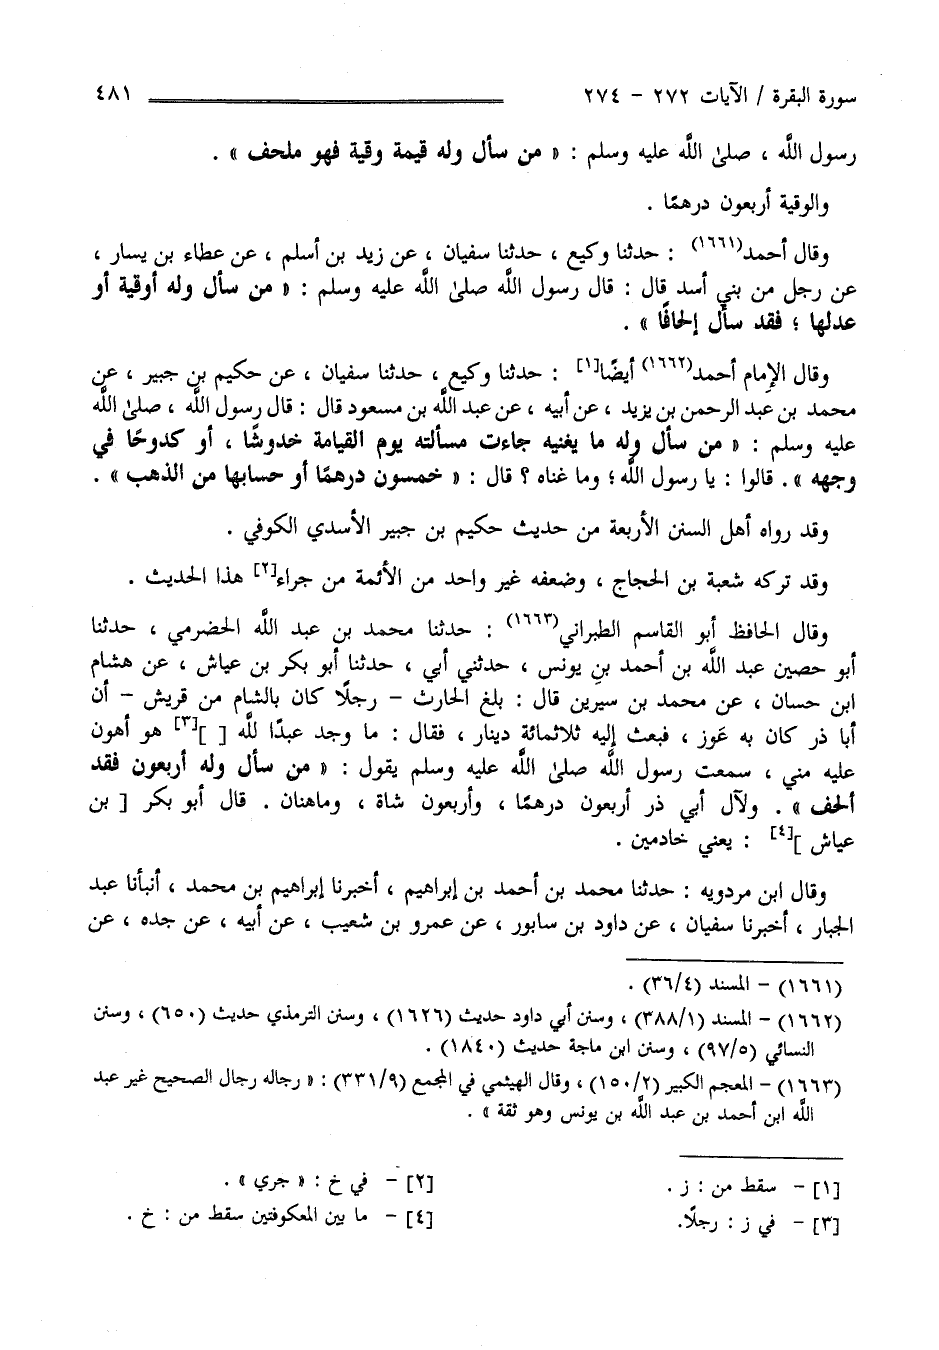 سورة البقرة / الآيات ٢٧٢ - ٢٧٤ ٤٨١
رسول اللَّه ، صلىٰ اللَّه عليه وسلم : « من سأل وله قيمة وقية فهو ملحف » .
والوقية أربعون درهمًا .
وقال أحمد(١٦٦١) : حدثنا وكيع ، حدثنا سفيان ، عن زيد بن أسلم ، عن عطاء بن يسار ،
عن رجل من بني أسد قال : قال رسول اللَّه صلىٰ اللَّه عليه وسلم : « من سأل وله أوقية أو
عدلها ؛ فقد سأل إلحافًا » .
وقال الإمام أحمد(١٦٦٢) أيضًا[١] : حدثنا وكيع ، حدثنا سفيان ، عن حكيم بن جبير ، عن
محمد بن عبد الرحمن بن يزيد ، عن أبيه ، عن عبد اللَّه بن مسعود قال : قال رسول اللَّه ، صلىٰ اللَّه
عليه وسلم : « من سأل وله ما يغنيه جاءت مسألته يوم القيامة خدوشًا ، أو كدوحًا في
وجهه » . قالوا : يا رسول اللَّه ؛ وما غناه ؟ قال : « خمسون درهمًا أو حسابها من الذهب » .
وقد رواه أهل السنن الأربعة من حديث حكيم بن جبير الأسدي الكوفي .
وقد تركه شعبة بن الحجاج ، وضعفه غير واحد من الأئمة من جراء[٢] هذا الحديث .
وقال الحافظ أبو القاسم الطبراني(١٦٦٣) : حدثنا محمد بن عبد اللَّه الحضرمي ، حدثنا
أبو حصين عبد اللَّه بن أحمد بن يونس ، حدثني أبي ، حدثنا أبو بكر بن عياش ، عن هشام
ابن حسان ، عن محمد بن سيرين قال : بلغ الحارث - رجلًا كان بالشام من قريش - أن
أبا ذر كان به عَوز ، فبعث إليه ثلاثمائة دينار ، فقال : ما وجد عبدًا للَّه [ ][٣] هو أهون
عليه مني ، سمعت رسول اللَّه صلىٰ اللَّه عليه وسلم يقول : « من سأل وله أربعون فقد
ألحف » . ولآل أبي ذر أربعون درهمًا ، وأربعون شاة ، وماهنان . قال أبو بكر [ بن
عياش ][٤] : يعني خادمين .
وقال ابن مردويه : حدثنا محمد بن أحمد بن إبراهيم ، أخبرنا إبراهيم بن محمد ، أنبأنا عبد
الجبار ، أخبرنا سفيان ، عن داود بن سابور ، عن عمرو بن شعيب ، عن أبيه ، عن جده ، عن
(١٦٦١) - المسند (٣٦/٤) .
(١٦٦٢) - المسند (٣٨٨/١) ، وسنن أبي داود حديث (١٦٢٦) ، وسنن الترمذي حديث (٦٥٠) ، وسنن
النسائي (٩٧/٥) ، وسنن ابن ماجة حديث (١٨٤٠) .
(١٦٦٣) - المعجم الكبير (١٥٠/٢) ، وقال الهيثمي في المجمع (٣٣١/٩) : « رجاله رجال الصحيح غير عبد
اللَّه ابن أحمد بن عبد اللَّه بن يونس وهو ثقة » .
[١] - سقط من : ز . [٢] - في خ : « جري » .
[٣] - في ز : رجلًا. [٤] - ما بين المعكوفتين سقط من : خ .